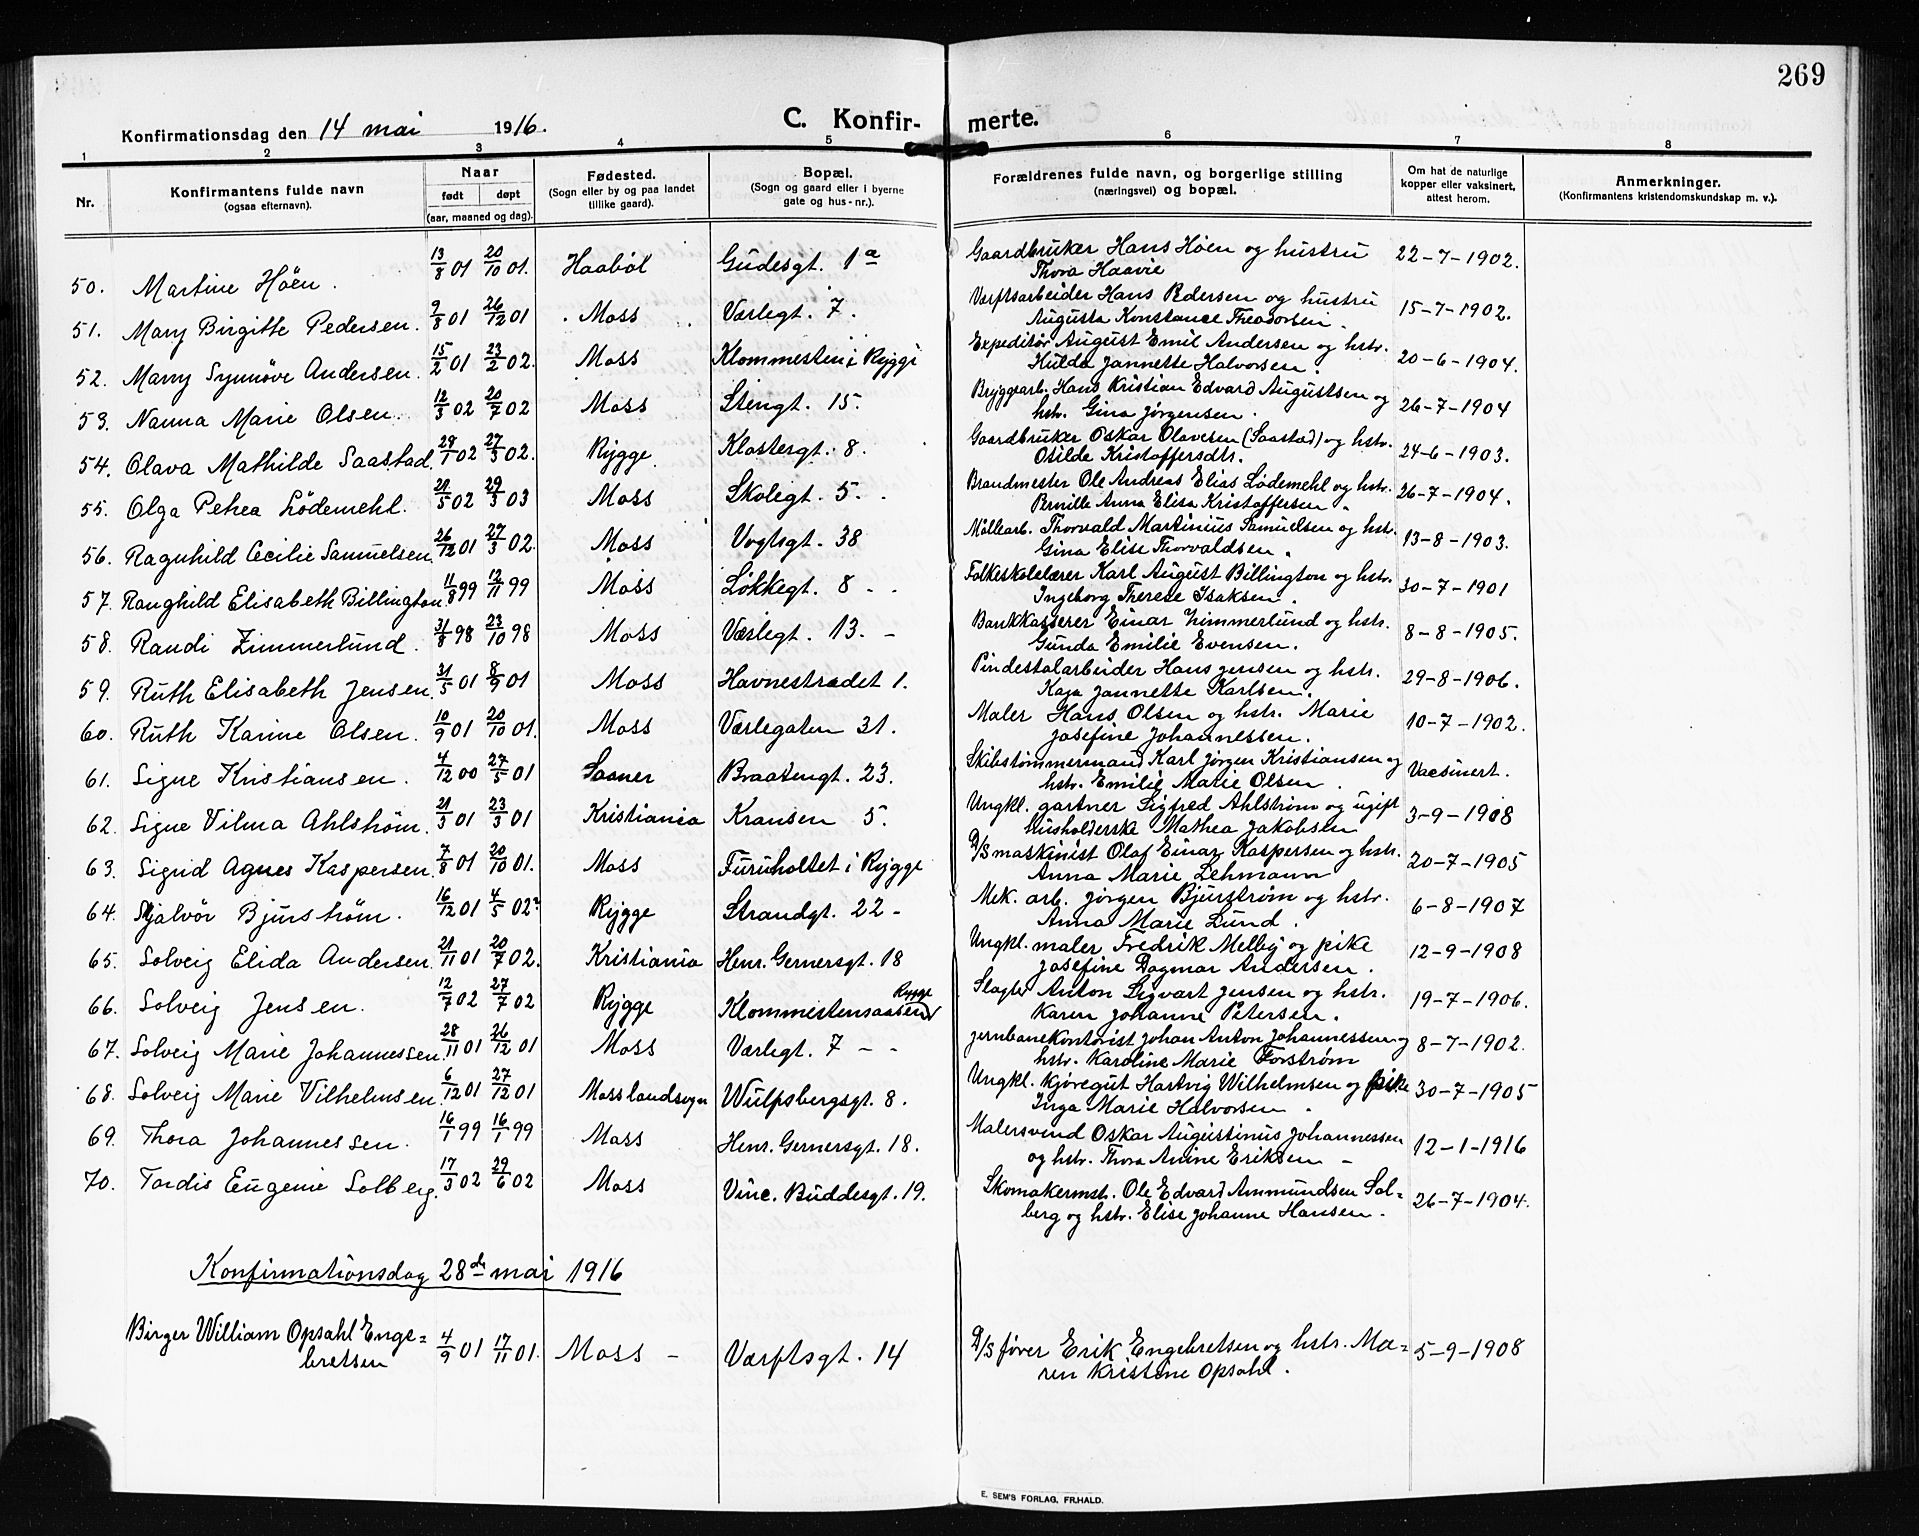 269
Konfirmationsdag den 14 mai 1916.
C. Konfir- merte.
1 2 3 4 5 6 7 8
Nr. Konfirmantens fulde navn (ogsaa efternavn). Naar født døpt (aar, maaned og dag). Fødested. (Sogn eller by og paa landet tillike gaard). Bopæl. (Sogn og gaard eller i byerne gate og hus-nr.). Forældrenes fulde navn, og borgerlige stilling (næringsvei) og bopæl. Om hat de naturlige kopper eller vaksinert, attest herom. Anmerkninger. (Konfirmantens kristendomskundskap m. v.).
50. Martine Höen. 13/8 01 20/10 01. Haaböl Gudesgt. 1a Gaardbruker Hans Höen og hustru Thora Haavie 22-7-1902.
51. Mary Birgitte Pedersen. 9/8 01 26/12 01 Moss Værlegt. 7. Værftsarbeider Hans Pedersen og hustru Augusta Konstance Theodorsen. 15-7-1902.
52. Marry Synnöve Andersen. 15/2 01 23/2 02. Moss Klommesten i Rygge Expeditör August Emil Andersen og hstr. Hulda Jannette Halvorsen. 20-6-1904.
53. Nanna Marie Olsen. 12/3 02 20/7 02 Moss Stengt. 15. Bryggearb. Hans Kristian Edvard Augustsen og hstr. Gina Jörgensen. 26-7-1904
54. Olava Mathilde Saastad. 29/1 02 27/3 02. Rygge. Klostergt. 8. Gaardbruker Oskar Olavesen (Saastad) og hstr. Otilde Kristoffersdtr. 24-6-1903.
55. Olga Petrea Lödemehl. 21/5 02 29/3 03 Moss Skolegt. 5. Brandmester Ole Andreas Elias Lödemehl og hstr. Pernille Anna Elisa Kristoffersen. 26-7-1904.
56. Ragnhild Cecilie Samuelsen 26/12 01 27/3 02. Moss Vogtsgt. 38 Möllearb. Thorvald Martinius Samuelsen og hstr. Gina Elise Thorvaldsen. 13-8-1903.
57. Ranghild Elisabeth Billington 11/8 99 12/11 99 Moss Lökkegt. 8 - - Folkeskolelærer Karl August Billington og hstr. Ingeborg Therese Isaksen. 30-7-1901
58. Randi Zimmerlund. 31/8 98 23/10 98 Moss Værlegt. 13. - Bankkasserer Einar Zimmerlund og hstr. Gunda Emilie Evensen. 8-8-1905.
59. Ruth Elisabeth Jensen. 31/5 01 8/9 01 Moss Havnestrædet 1. Pindestolarbeider Hans Jensen og hstr. Kaja Jannette Karlsen. 29-8-1906.
60. Ruth Karine Olsen. 10/9 01 20/10 01. Moss Værlegaten 31. Maler Hans Olsen og hstr. Marie Josefine Johannessen. 10-7-1902.
61. Signe Kristiansen. 4/12 00 27/5 01 Saaner Braatengt. 23. Skibstömmermand Karl Jörgen Kristiansen og hstr. Emilie Marie Olsen. Vacsinert.
62. Signe Vilma Ahlström. 21/3 01 23/3 01 Kristiania Kransen 5. Ungkl. gartner Sigfred Ahlström og ugift husholderske Mathea Jakobsen 3-9-1908
63. Sigrid Agnes Kaspersen. 7/8 01 20/10 01. Moss Furuholtet i Rygge D/S maskinist Olaf Einar Kaspersen og hstr. Anna Marie Lehmann 20-7-1905
64. Sjalvör Bjurström. 16/12 01 4/5 02. Rygge Strandgt. 22 - Mek. arb. Jörgen Bjurström og hstr. Anna Marie Lund. 6-8-1907
65. Solveig Elida Andersen. 21/11 01 20/7 02. Kristiania Henr. Gernersgt. 18 Ungkl. maler Fredrik Melby og pike Josefine Dagmar Andersen. 12-9-1908
66. Solveig Jensen. 12/7 02 27/7 02 Rygge Klommestensaasen Rygge Slagter Anton Sigvart Jensen og hstr. Karen Johanne Petersen. 19-7-1906.
67. Solveig Marie Johannessen. 28/11 01 26/12 01 Moss Værlegt. 7 - - Jernbanekontorist Johan Anton Johannessen og hstr. Karoline Marie Forström 8-7-1902.
68. Solveig Marie Vilhelmsen 6/12 01 27/12 01 Moss landsogn Wulfsbergsgt. 8. Ungkl. kjöregut Hartvig Wilhelmsen og pike Inga Marie Halvorsen. 30-7-1905
69. Thora Johannessen. 16/1 99 16/1 99 Moss Henr. Gernersgt. 18. Malersvend Oskar Augustinus Johannessen og hstr. Thora Anine Eriksen - 12-1-1916
70. Tordis Eugenie Solberg. 17/3 02 29/6 02 Moss Vinc. Buddesgt. 19. Skomakermst. Ole Edvard Ammundsen Sol= berg og hstr. Elise Johanne Hansen. 26-7-1904.
Konfirmationsdag 28de mai 1916
Birger William Opsahl Enge= bretsen 4/9 01 17/11 01. Moss - Værftsgt. 14 D/S förer Erik Engebretsen og hstr. Ma= ren Kristine Opsahl. 5-9-1908
E. SEM'S FORLAG, FR.HALD.